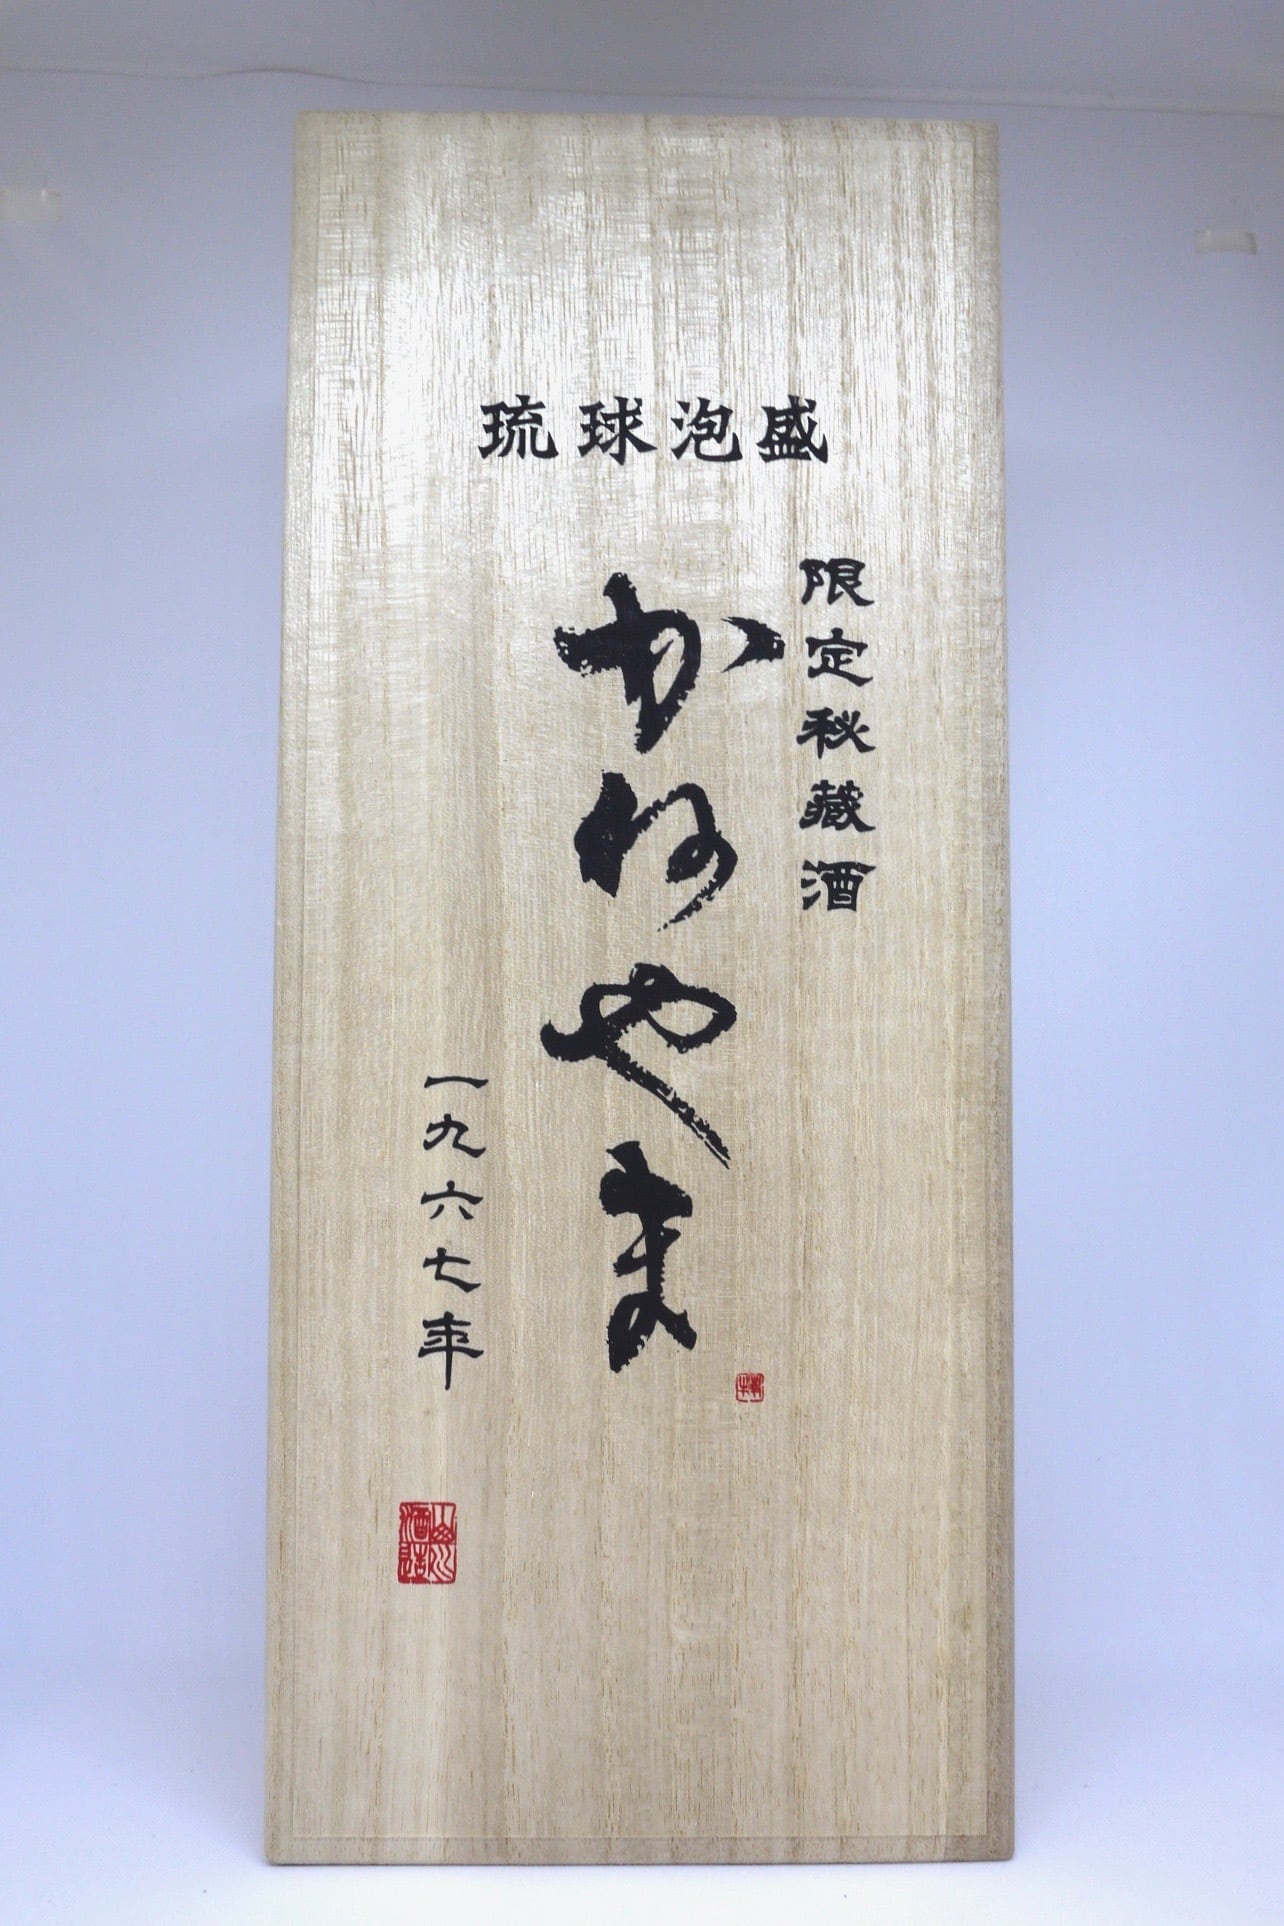 琉球泡盛
限定秘蔵酒
かねやま
一九六七年
山川酒造